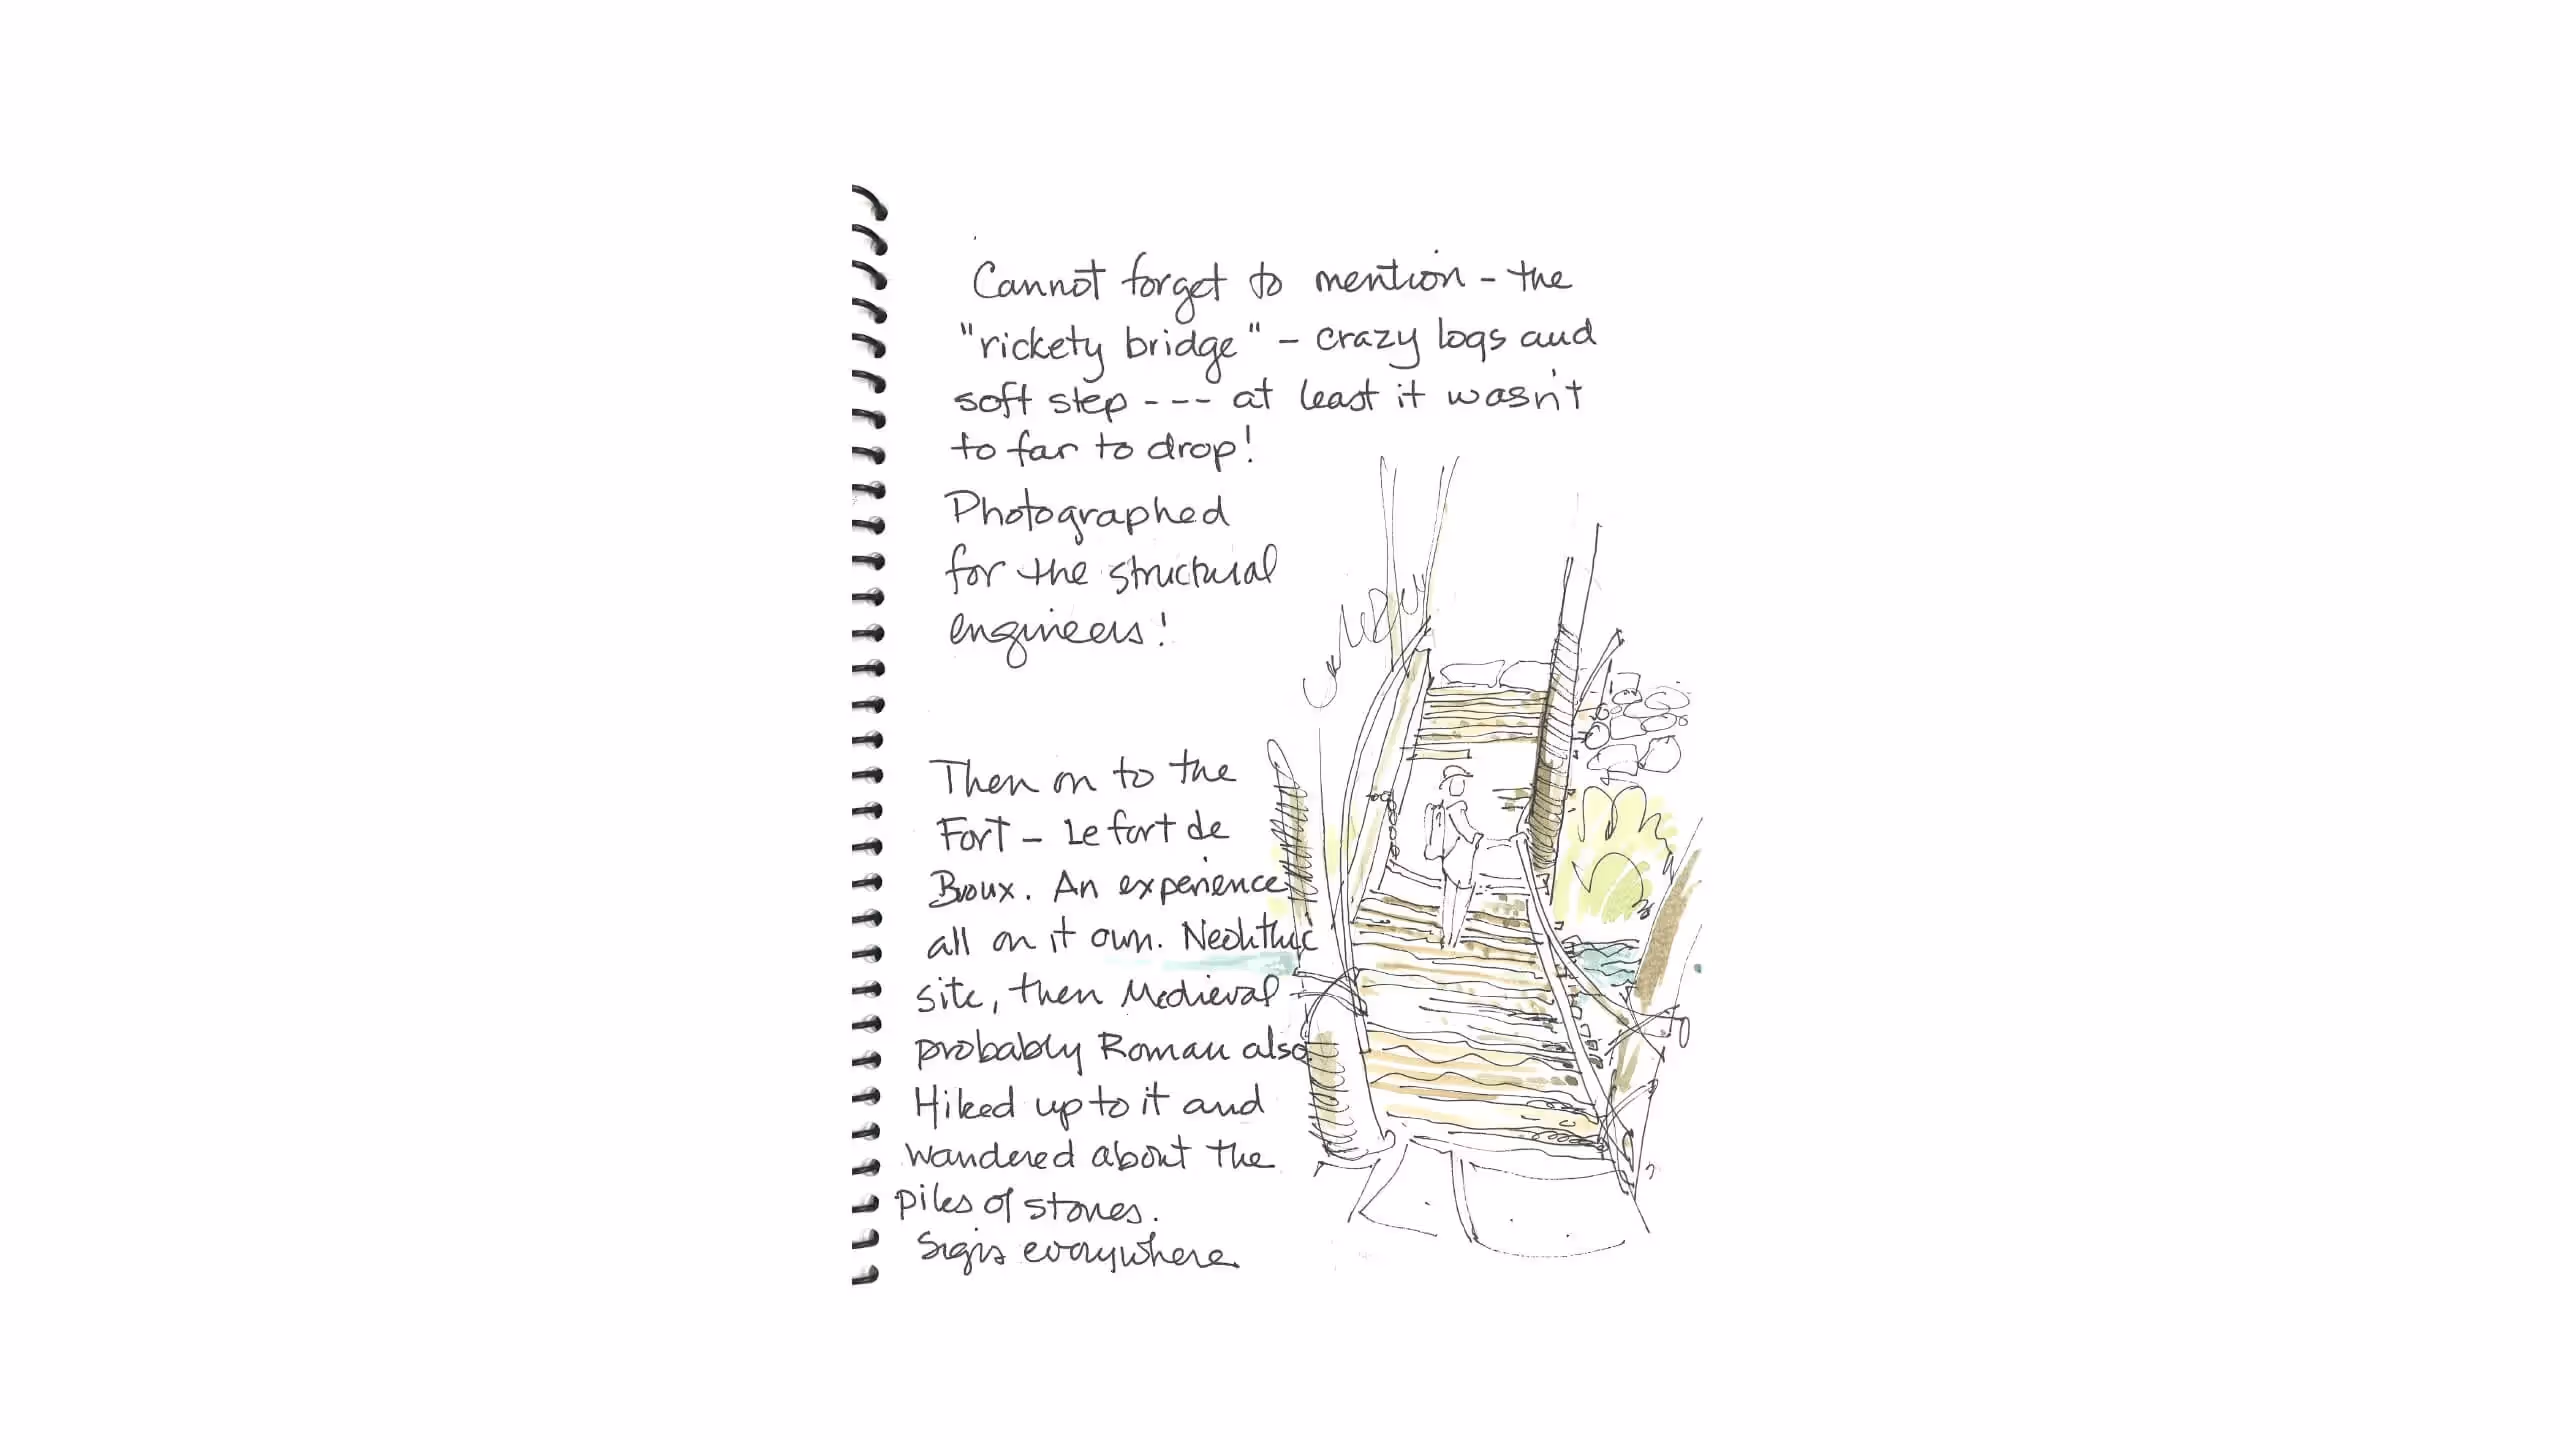 Cannot forget to mention - the
"rickety bridge" - crazy logs and
soft step --- at least it wasn't
to far to drop!
Photographed
for the structural
engineers!
Then on to the
Fort - Le fort de
Bioux. An experience
all on it own. Neolithic
site, then Medieval -
probably Roman also.
Hiked up to it and
wandered about the
piles of stones.
Signs everywhere